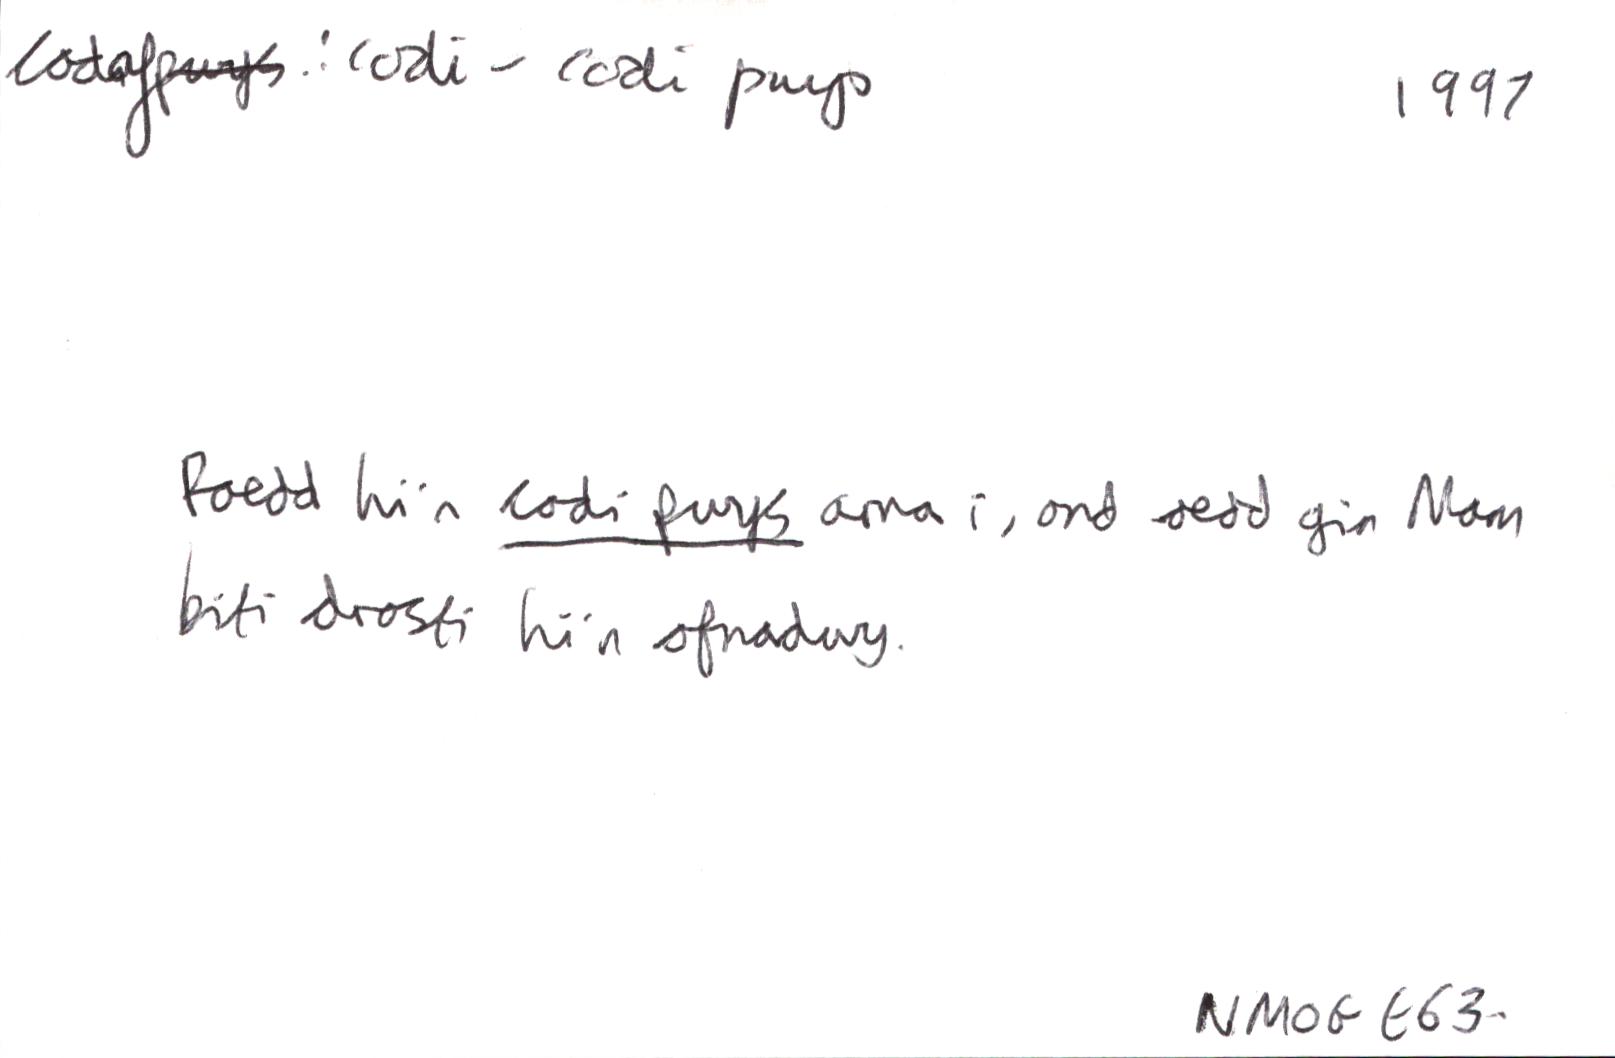 Codaf pwys : codi - codi pwys 1997
Roedd hi'n codi pwys arna i, ond oedd gin Mam
biti drosti hi'n ofnadwy.
NMOG E63.